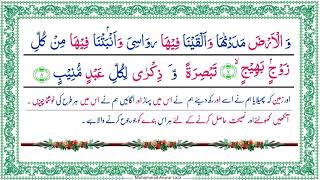 وَ الْاَرْضَ مَدَدْنٰهَا وَاَلْقَيْنَا فِيْهَا رَوَاسِیَ وَاَنْۢبَتْنَا فِيْهَا مِنْ كُلِّ
زَوْجٍۭ بَهِيْجٍ ۙ۷ تَبْصِرَةً وَّ ذِكْرٰى لِكُلِّ عَبْدٍ مُّنِيْبٍ ۸
اور زمین کہ پھیلایا ہم نے اسے اور رکھ دیئے ہم نے اس میں پہاڑ اور اگائیں ہم نے اس میں ہر طرح کی خوشنما چیزیں۔
آنکھیں کھولنے اور نصیحت حاصل کرنے کے لئے ہر اس بندے کو جو رجوع کرنے والا ہے۔